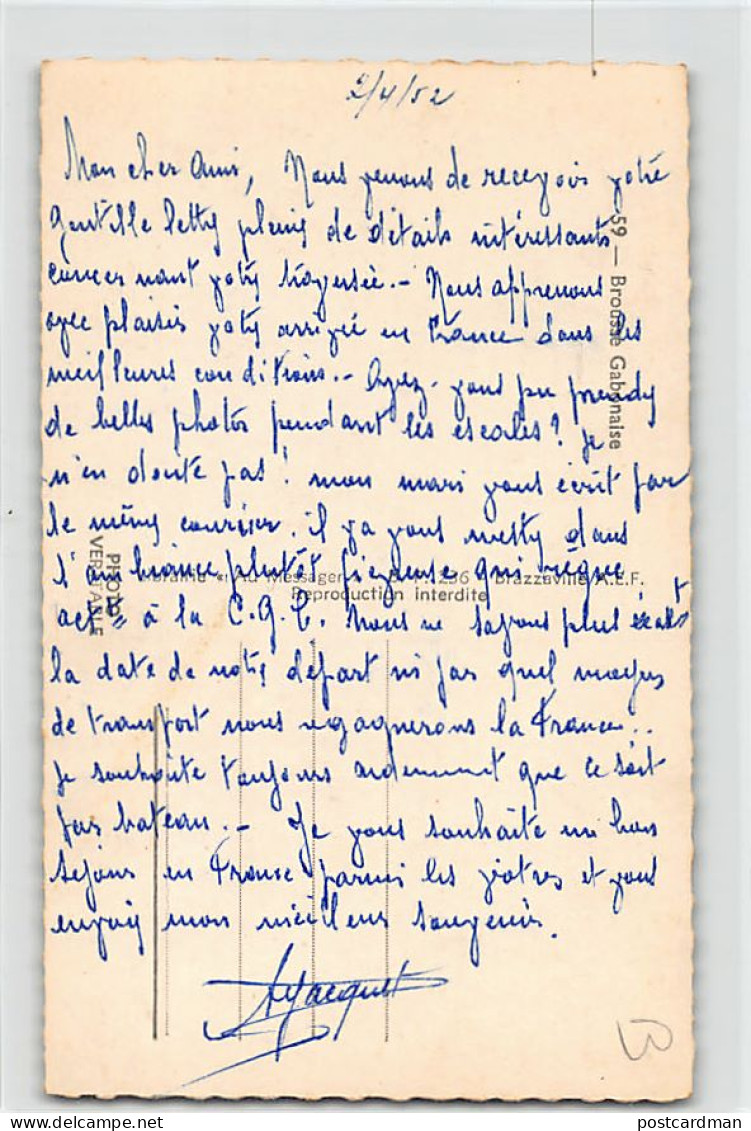 2/4/52
Mon cher Ami, Nous venons de recevoir votre
gentille lettre pleine de détails intéressants
concernant votre traversée.- Nous apprenons
avec plaisir votre arrivée en France dans les
meilleures conditions.- Avez-vous pu prendre
de belles photos pendant les escales? Je
n'en doute pas! mon mari vous écrit par
le même courrier. il va vous mettre dans
l'ambiance plutôt fiévreuse qui règne
actt à la C.G.T. Nous ne savons plus exactt
la date de notre départ ni par quel moyen
de transport nous regagnerons la France..
Je souhaite toujours ardemment que ce soit
par bateau.- Je vous souhaite un bon
séjour en France parmi les vôtres et vous
envoie mon meilleur souvenir.
Jacquet
59 — Brousse Gabonaise
PHOTO
VERITABLE
Librairie « Au Messager 256 Brazzaville A.E.F.
Reproduction interdite
postcardman